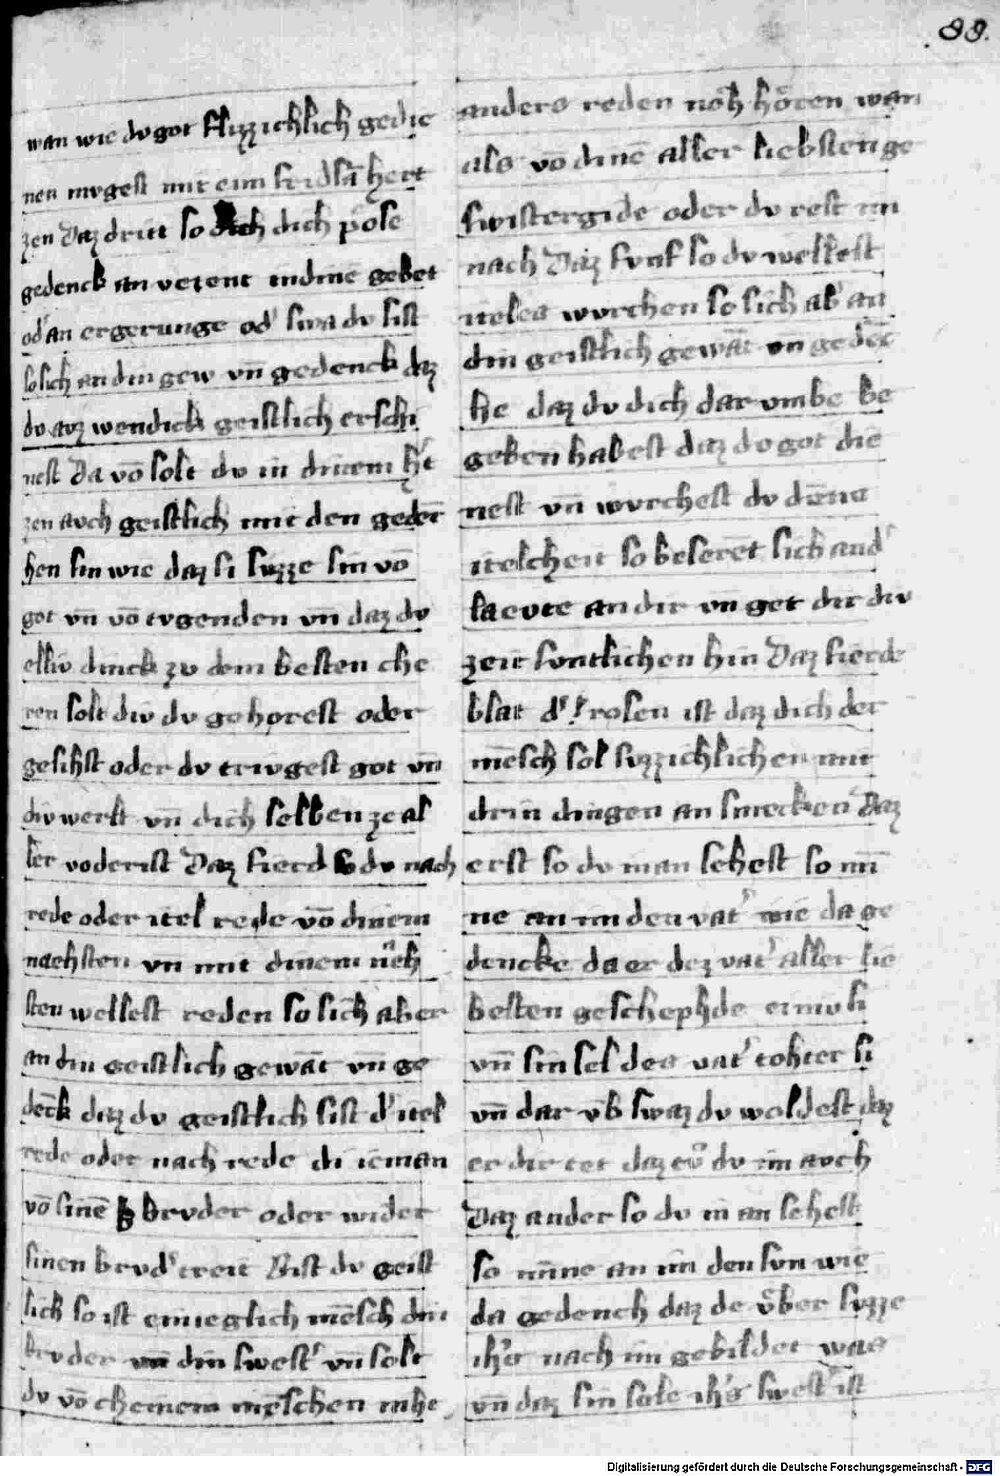 88.
wan wie dv got flizzichlich gedie
nen mvgest mit eim fridsā hert
zen Daz dritt so dich pose
gedenck an vezent in dinē gebet
od' an ergerunge od' swa dv sist
so sich an din gew vn̄ gedenck daz
dv avz wendick geistlich erschi
nest Da vō solt dv in dinem h't
zen avch geistlich mit den geden̄
hen sin wie daz si svzze sin vō
got vn̄ vō tvgenden vn̄ daz dv
elliv dinck zv dem besten che
ren solt div dv gehorest oder
gesihst oder dv trivgest got vn̄
div werlt vn̄ dich selben ze al
ler voderist Daz fierd so dv nach
rede oder itel rede vō dinem
nachsten vn mit dinem neh
sten wellest reden so sich aber
an din geistlich gewāt vn̄ ge
dēck daz dv geistlich sist d' itel
rede oder nach rede di ieman
vō sinē brvder oder wider
sinen brvd' treit Bist dv geist
lich so ist ein ieglich mēsch din
brvder vn̄ din swest' vn̄ solt
dv vō cheinem menschen nihe
anders reden noh hören wan
als vō dinē aller liebsten ge
swistergide oder dv rest im
nach Daz fvnf so dv wellest
iteles wvrchen so sich ab' an
din geistlich gewāt vn̄ gedēc
he daz dv dich dar vmbe be
geben habest daz dv got die
nest vn̄ wvrchest dv dēne
itelcheit so beseret sich and'
laevte an dir vn get dir div
zeit svntlichen hin Daz fierde
blat d' rosen ist daz dich der
mēsch sol svzzichlichen mit
drin dingen an smecken Daz
erst so dv in an sehest so nī
ne an im den vat' wie da ge
dencke da er dez vat' aller lie
besten geschephde
vn̄ sin sel des vat' tohter si
vn̄ dar vb swaz dv woldest daz
er dir tet daz tv dv im avch
Daz ander so dv in an sehest
so nīne an im den svn wie
da gedench daz de vber svzze
ih's nach im gebildet was
vn̄ daz sin sele ih's swest' ist
Digitalisierung gefördert durch die Deutsche Forschungsgemeinschaft - DFG